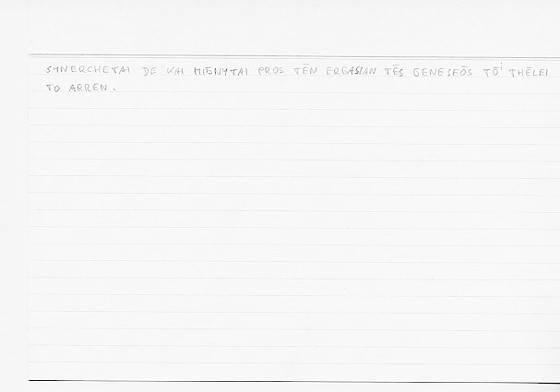 SYNERCHETAI DE KAI MIGNYTAI PROS TĒN ERGASIAN TĒS GENESEŌS TŌⁱ THĒLEI
TO ARREN.